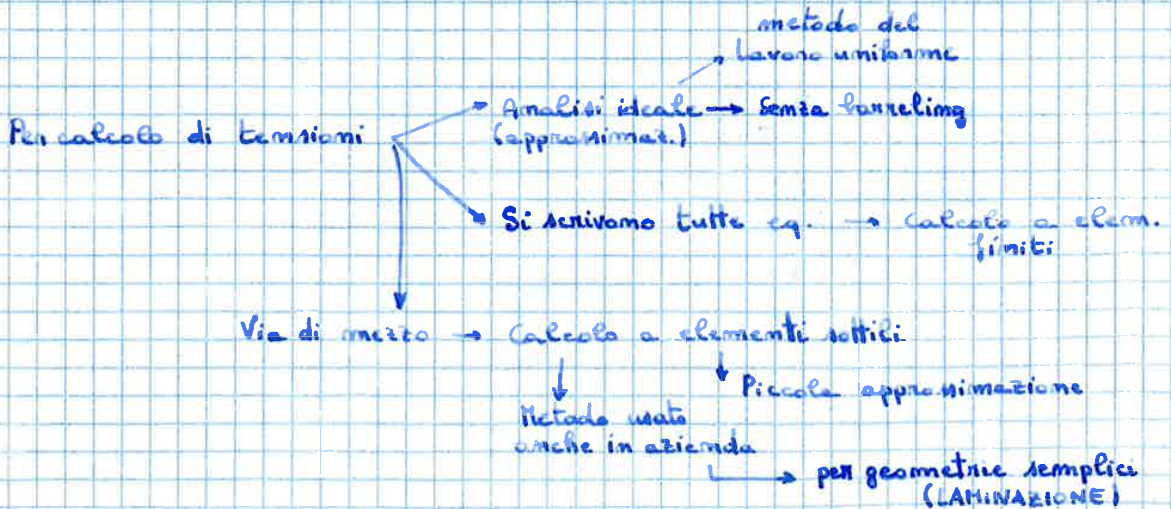 metodo del
lavoro uniforme
Analisi ideale → Senza barreling
(approssimaz.)
Per calcolo di tensioni
Si scrivono tutte eq. → Calcolo a elem.
finiti
Via di mezzo → Calcolo a elementi sottili
Piccola approssimazione
Metodo usato
anche in azienda
per geometrie semplici
(LAMINAZIONE)